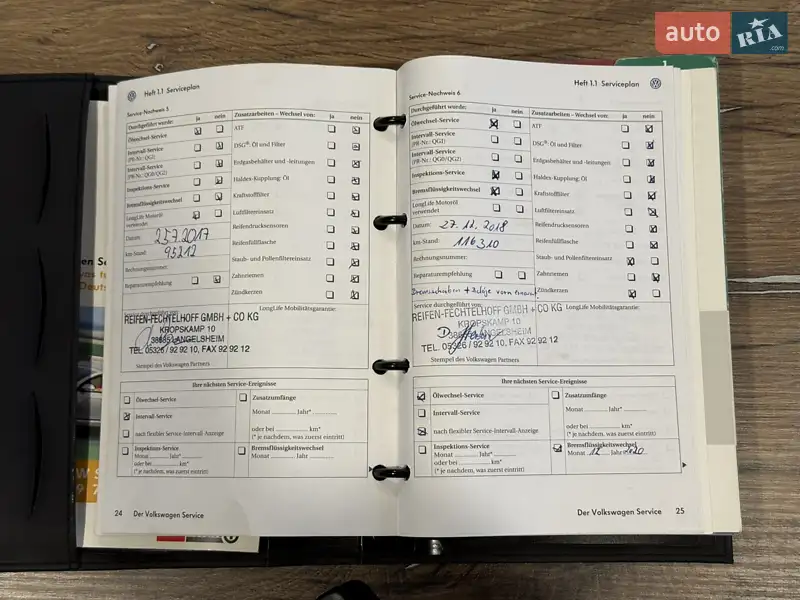 auto RIA.com
Heft 1.1 Serviceplan
Service-Nachweis 5
Durchgeführt wurde: ja nein
Ölwechsel-Service
Intervall-Service
(PR-Nr.: QG1)
Intervall-Service
(PR-Nr.: QG0/QG2)
Inspektions-Service
Bremsflüssigkeitswechsel
LongLife Motoröl
verwendet
Datum: 25.7.2017
km-Stand: 95212
Rechnungsnummer:
Reparaturempfehlung
Zusatzarbeiten – Wechsel von: ja nein
ATF
DSG®: Öl und Filter
Erdgasbehälter und -leitungen
Haldex-Kupplung: Öl
Kraftstofffilter
Luftfiltereinsatz
Reifendrucksensoren
Reifenfüllflasche
Staub- und Pollenfiltereinsatz
Zahnriemen
Zündkerzen
Service durchgeführt von:
LongLife Mobilitätsgarantie:
REIFEN-FECHTELHOFF GMBH + CO KG
KROPSKAMP 10
38685 LANGELSHEIM
TEL. 05326 / 92 92 10, FAX 92 92 12
Stempel des Volkswagen Partners
Ihre nächsten Service-Ereignisse
Ölwechsel-Service
Intervall-Service
nach flexibler Service-Intervall-Anzeige
Inspektions-Service
Monat Jahr*
oder bei km*
(* je nachdem, was zuerst eintritt)
Zusatzumfänge
Monat Jahr*
oder bei km*
(* je nachdem, was zuerst eintritt)
Bremsflüssigkeitswechsel
Monat Jahr
24 Der Volkswagen Service
Heft 1.1 Serviceplan
Service-Nachweis 6
Durchgeführt wurde: ja nein
Ölwechsel-Service
Intervall-Service
(PR-Nr.: QG1)
Intervall-Service
(PR-Nr.: QG0/QG2)
Inspektions-Service
Bremsflüssigkeitswechsel
LongLife Motoröl
verwendet
Datum: 27.12.2018
km-Stand: 116310
Rechnungsnummer:
Reparaturempfehlung
Zusatzarbeiten – Wechsel von: ja nein
ATF
DSG®: Öl und Filter
Erdgasbehälter und -leitungen
Haldex-Kupplung: Öl
Kraftstofffilter
Luftfiltereinsatz
Reifendrucksensoren
Reifenfüllflasche
Staub- und Pollenfiltereinsatz
Zahnriemen
Zündkerzen
Bremsscheiben + Beläge vorn
Service durchgeführt von:
LongLife Mobilitätsgarantie:
REIFEN-FECHTELHOFF GMBH + CO KG
KROPSKAMP 10
38685 LANGELSHEIM
TEL. 05326 / 92 92 10, FAX 92 92 12
Stempel des Volkswagen Partners
Ihre nächsten Service-Ereignisse
Ölwechsel-Service
Intervall-Service
nach flexibler Service-Intervall-Anzeige
Inspektions-Service
Monat Jahr*
oder bei km*
(* je nachdem, was zuerst eintritt)
Zusatzumfänge
Monat Jahr*
oder bei km*
(* je nachdem, was zuerst eintritt)
Bremsflüssigkeitswechsel
Monat 12 Jahr 2020
Der Volkswagen Service 25